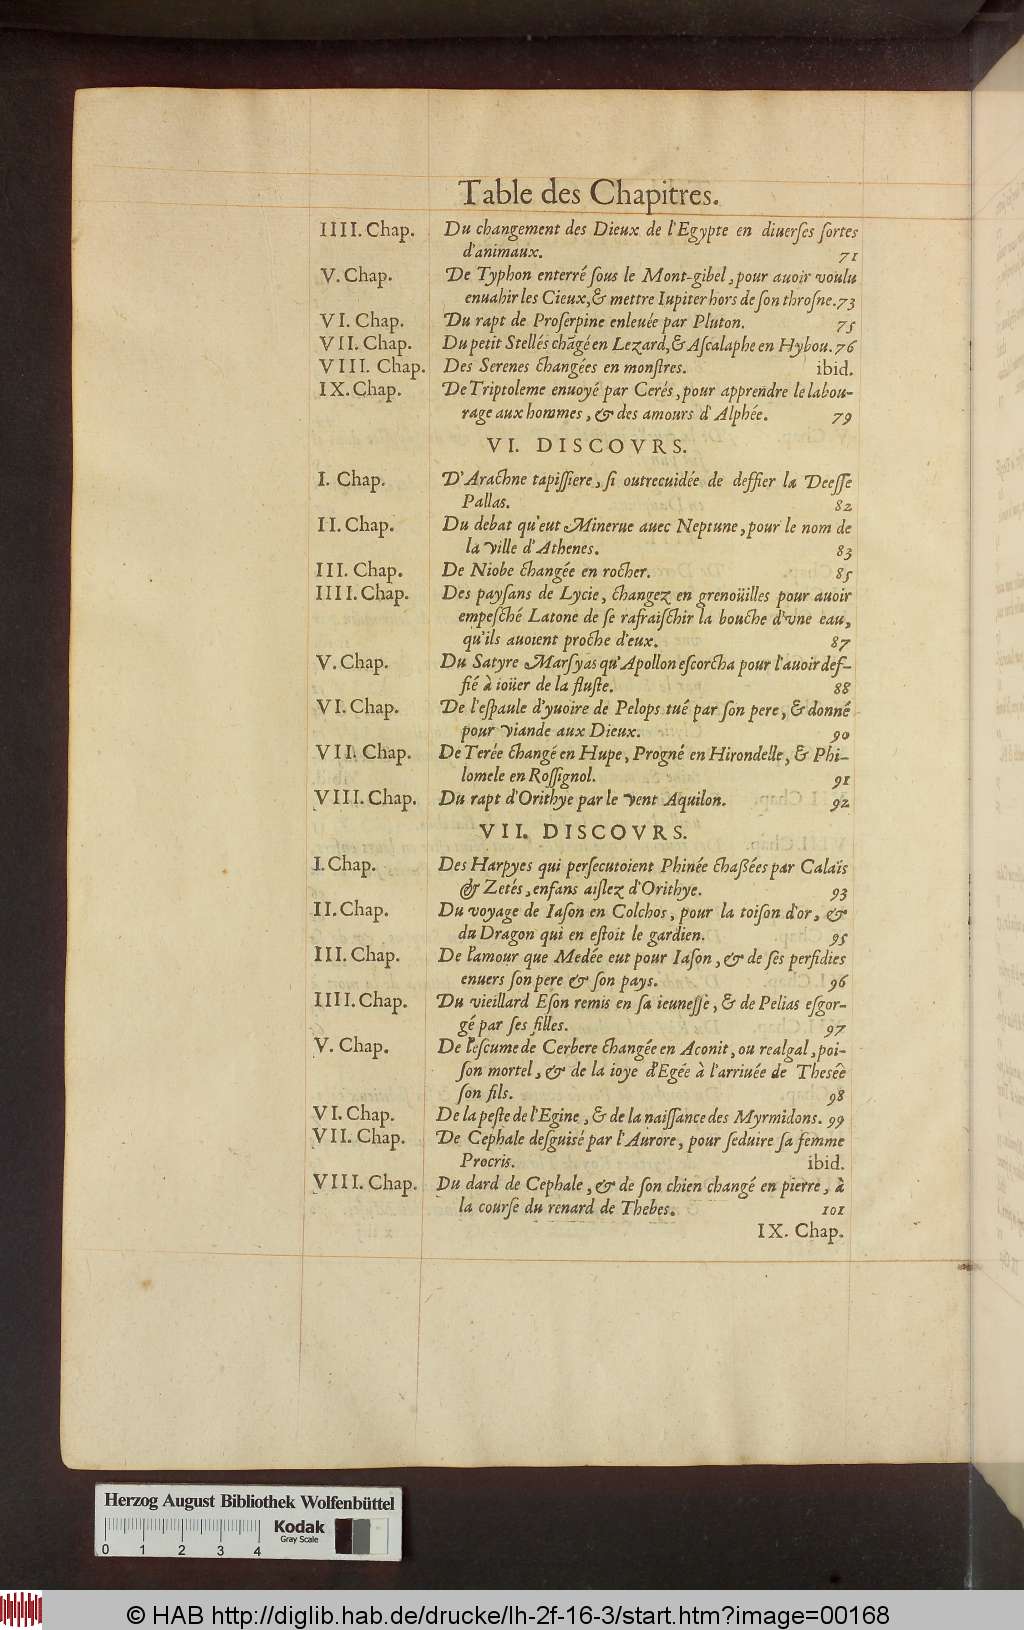 Table des Chapitres.
IIII. Chap. Du changement des Dieux de l'Egypte en diuerſes ſortes
d'animaux. 71
V. Chap. De Typhon enterré ſous le Mont-gibel, pour auoir voulu
enuahir les Cieux, & mettre Iupiter hors de ſon throſne. 73
VI. Chap. Du rapt de Proſerpine enleuée par Pluton. 75
VII. Chap. Du petit Stellés chãgé en Lezard, & Aſcalaphe en Hybou. 76
VIII. Chap. Des Serenes changées en monſtres. ibid.
IX. Chap. De Triptoleme enuoyé par Cerés, pour apprendre le labou-
rage aux hommes, & des amours d'Alphée. 79
VI. DISCOVRS.
I. Chap. D'Arachne tapiſſiere, ſi outrecuidée de deffier la Deeſſe
Pallas. 82
II. Chap. Du debat qu'eut Minerue auec Neptune, pour le nom de
la ville d'Athenes. 83
III. Chap. De Niobe changée en rocher. 85
IIII. Chap. Des payſans de Lycie, changez en grenoüilles pour auoir
empeſché Latone de ſe rafraiſchir la bouche d'vne eau,
qu'ils auoient proche d'eux. 87
V. Chap. Du Satyre Marſyas qu'Apollon eſcorcha pour l'auoir def-
fié à ioüer de la fluſte. 88
VI. Chap. De l'eſpaule d'yuoire de Pelops tué par ſon pere, & donné
pour viande aux Dieux. 90
VII. Chap. De Terée changé en Hupe, Progné en Hirondelle, & Phi-
lomele en Roſſignol. 91
VIII. Chap. Du rapt d'Orithye par le vent Aquilon. 92
VII. DISCOVRS.
I. Chap. Des Harpyes qui perſecutoient Phinée chaßées par Calaïs
& Zetés, enfans aiſlez d'Orithye. 93
II. Chap. Du voyage de Iaſon en Colchos, pour la toiſon d'or, &
du Dragon qui en eſtoit le gardien. 95
III. Chap. De l'amour que Medée eut pour Iaſon, & de ſes perfidies
enuers ſon pere & ſon pays. 96
IIII. Chap. Du vieillard Eſon remis en ſa ieuneſſe, & de Pelias eſgor-
gé par ſes filles. 97
V. Chap. De l'eſcume de Cerbere changée en Aconit, ou realgal, poi-
ſon mortel, & de la ioye d'Egée à l'arriuée de Theſée
ſon fils. 98
VI. Chap. De la peſte de l'Egine, & de la naiſſance des Myrmidons. 99
VII. Chap. De Cephale deſguisé par l'Aurore, pour ſeduire ſa femme
Procris. ibid.
VIII. Chap. Du dard de Cephale, & de ſon chien changé en pierre, à
la courſe du renard de Thebes. 101
IX. Chap.
Herzog August Bibliothek Wolfenbüttel
Kodak
Gray Scale
0 1 2 3 4
© HAB http://diglib.hab.de/drucke/lh-2f-16-3/start.htm?image=00168